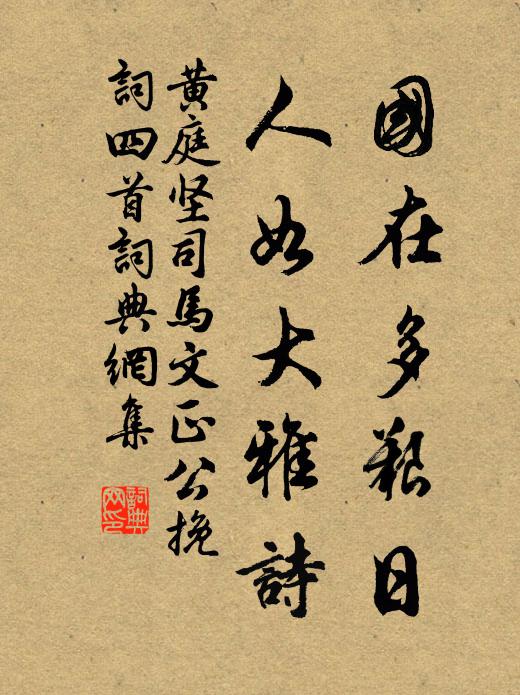 國在多艱日
人如大雅詩
黃庭坚司馬文正公挽
詞四首詞典網集
詞典
网印